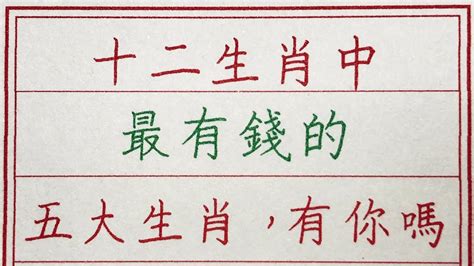 十二生肖中
最有錢的
五大生肖，有你嗎